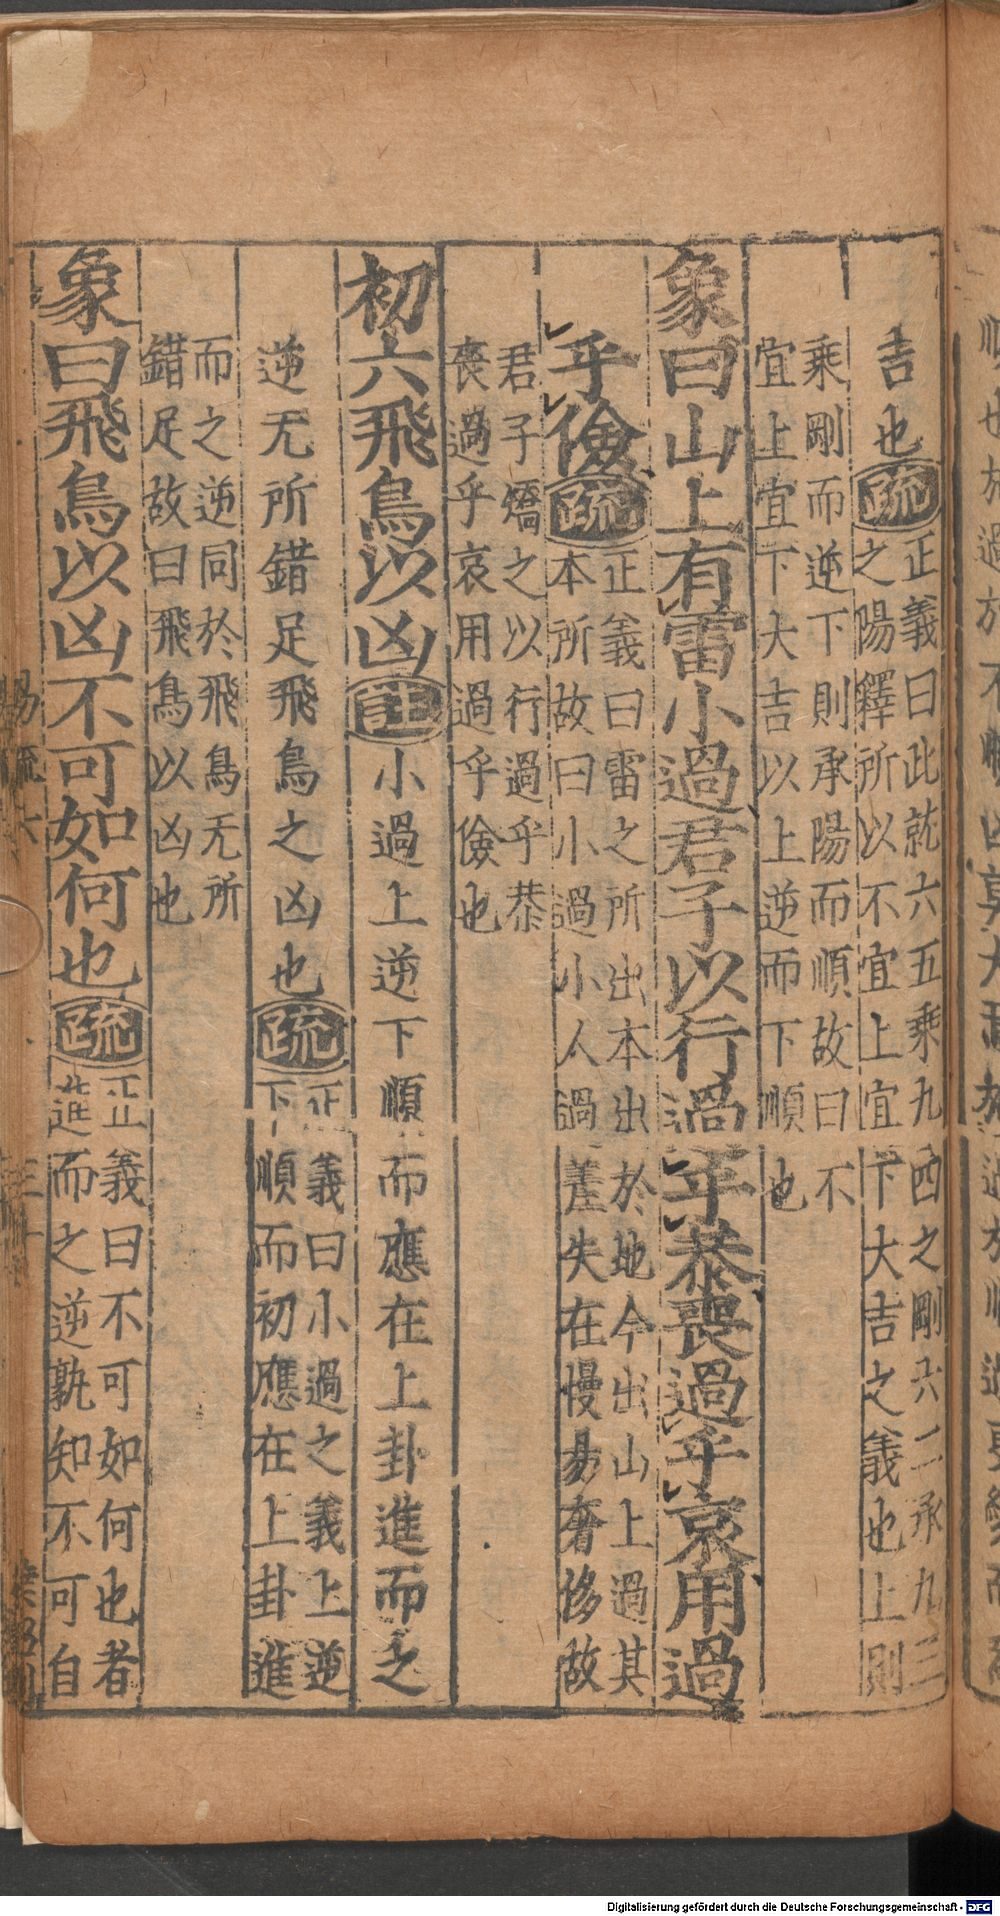 吉也疏正義曰此就六五乘九四之剛六二承九三
之陽釋所以不宜上宜下大吉之義也上則
乘剛而逆下則承陽而順故曰不
宜上宜下大吉以上逆而下順也
象曰山上有雷小過君子以行過乎恭喪過乎哀用過
乎儉疏正義曰雷之所出本出於地今出山上過其
本所故曰小過小人過差失在慢易奢侈故
君子矯之以行過乎恭
喪過乎哀用過乎儉也
初六飛鳥以凶註小過上逆下順而應在上卦進而之
逆无所錯足飛鳥之凶也疏正義曰小過之義上逆
下順而初應在上卦進
而之逆同於飛鳥无所
錯足故曰飛鳥以凶也
象曰飛鳥以凶不可如何也疏正義曰不可如何也者
進而之逆孰知不可自
Digitalisierung gefördert durch die Deutsche Forschungsgemeinschaft - DFG